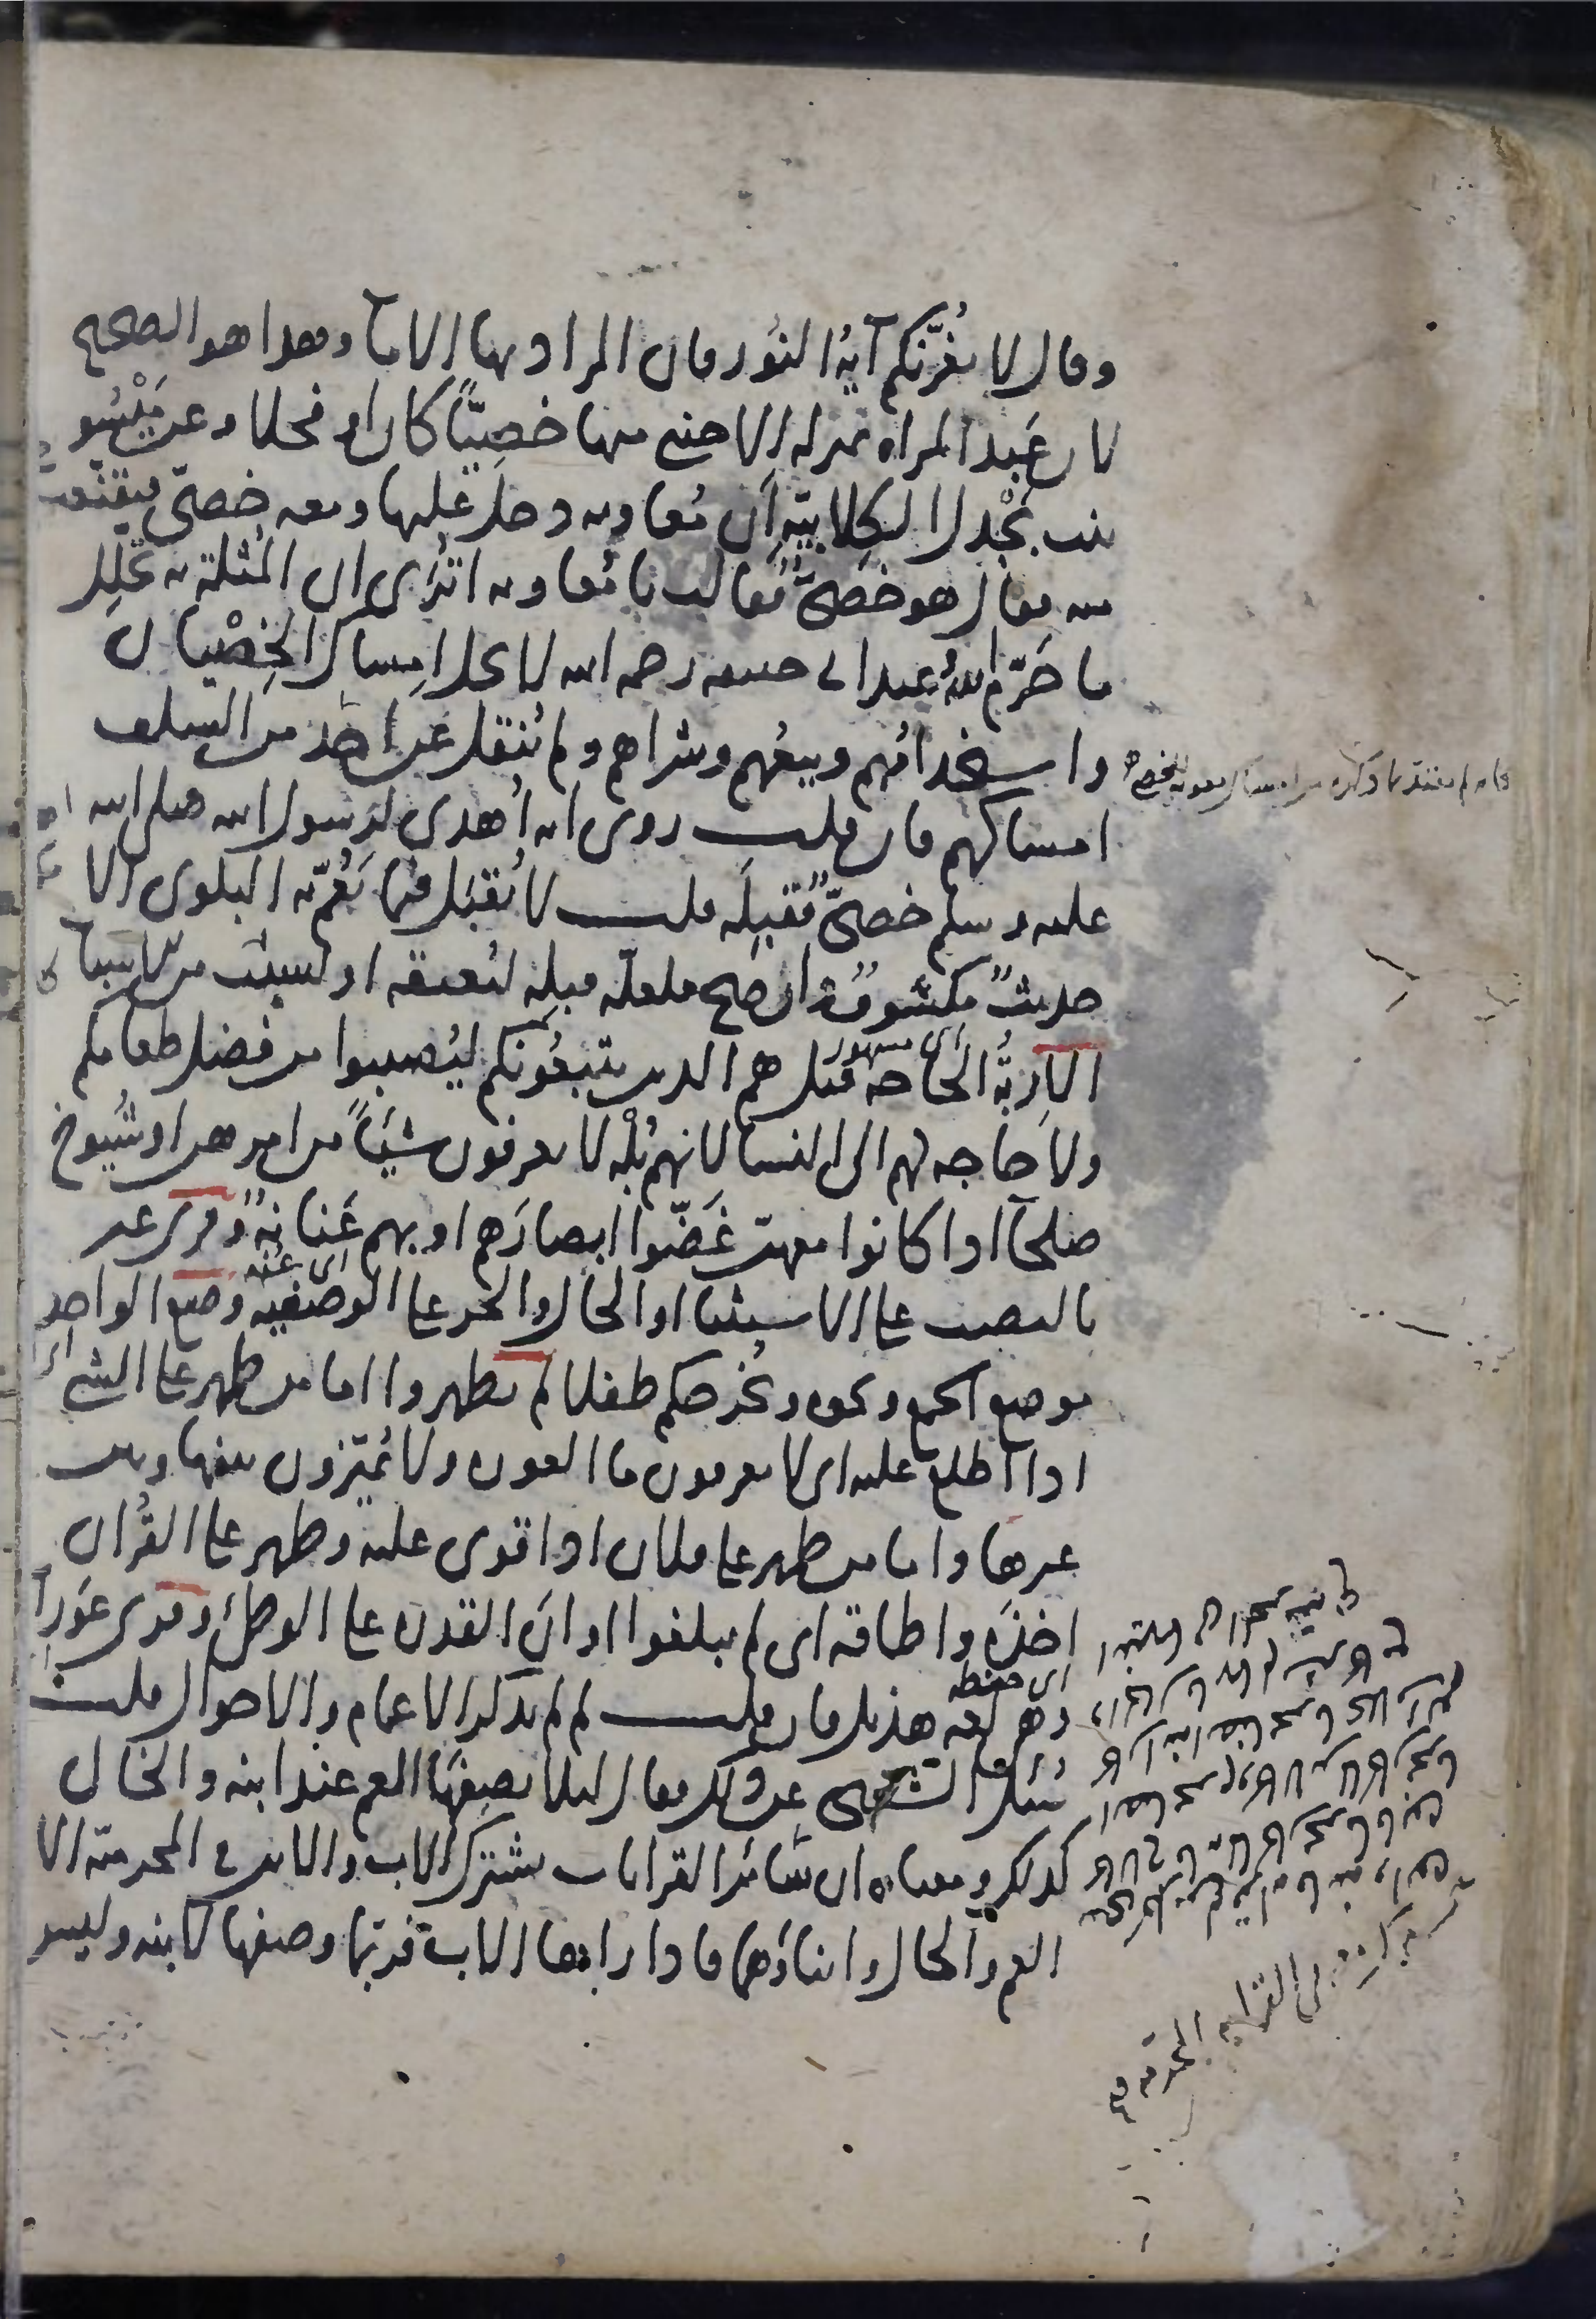 وقال لا يغرّنكم آية النور فان المراد بها الاماء وهذا هو الصحيح
لان عبد المراة بمنزلة الاجنبي منها خصيًّا كان او فحلا وعن ميْسُون
بنت بَحْدل الكلابيّة أن مُعاوية دخل عليها ومعه خصيّ فتقنّعت
منه فقال هو خصيّ فقالت يا مُعاوية اترى ان المُثلة به تحلّل
ما حرّم الله وعند ابى حنيفة رحمه الله لا يحل امساك الخِصْيان
واستخدامُهم وبيعُهم وشراهم ولم يُنقل عن احد من السلف
امساكهم فان قلت روى انه أُهدى لرسول الله صلى الله
عليه وسلم خصيّ فقبِلَه قلت لا يُقبَل فيما تعُمّ به البلوى الا
حديثٌ مكشوف وان صح فلعلّه قبِله ليُعتقه او لسبب من الاسباب
اى مشهور
الاربةُ الحاجة قيل هم الذين يتبعُونكم ليُصيبوا من فضل طعامكم
ولا حاجه لهم الى النسا لانهم بُلْه لا يعرفون شيًا من امرهن او شُيوخ
صلحآ اذا كانوا معهنّ غَضّوا ابصارَهم او بهم عَنانةٌ وقرى غير
اى عُنة
بالنصب على الاستثنا او الحال والجر على الوصفيّة وضع الواحد
موضع الجمع ونحوه ونُخرجكم طفلا لم يظهروا اما من ظهر على الشى
اذا اطلع عليه اى لا يعرفون ما العورة ولا يُميّزون بينها وبين
غيرها واما من ظهر على فلان اذا قوى عليه وظهر على القرآن
اخذَه واطاقه اى لم يبلغوا اوانَ القدرة على الوطئ وقرى عَوَرات
اى حفظه
وهى لغه هذيل فان قلت لم لم يذكر الاعمام والاخوال قلت
سُئل الشعبى عن ذلك فقال ليلا يصِفَها العم عند ابنه والخال
كذلك ومعناه ان سائر القرابات يشترك الاب والابن فى المحرمية الا
العم والخال وابناؤهما فاذا رآها الاب فربّما وصفها لابنه وليس